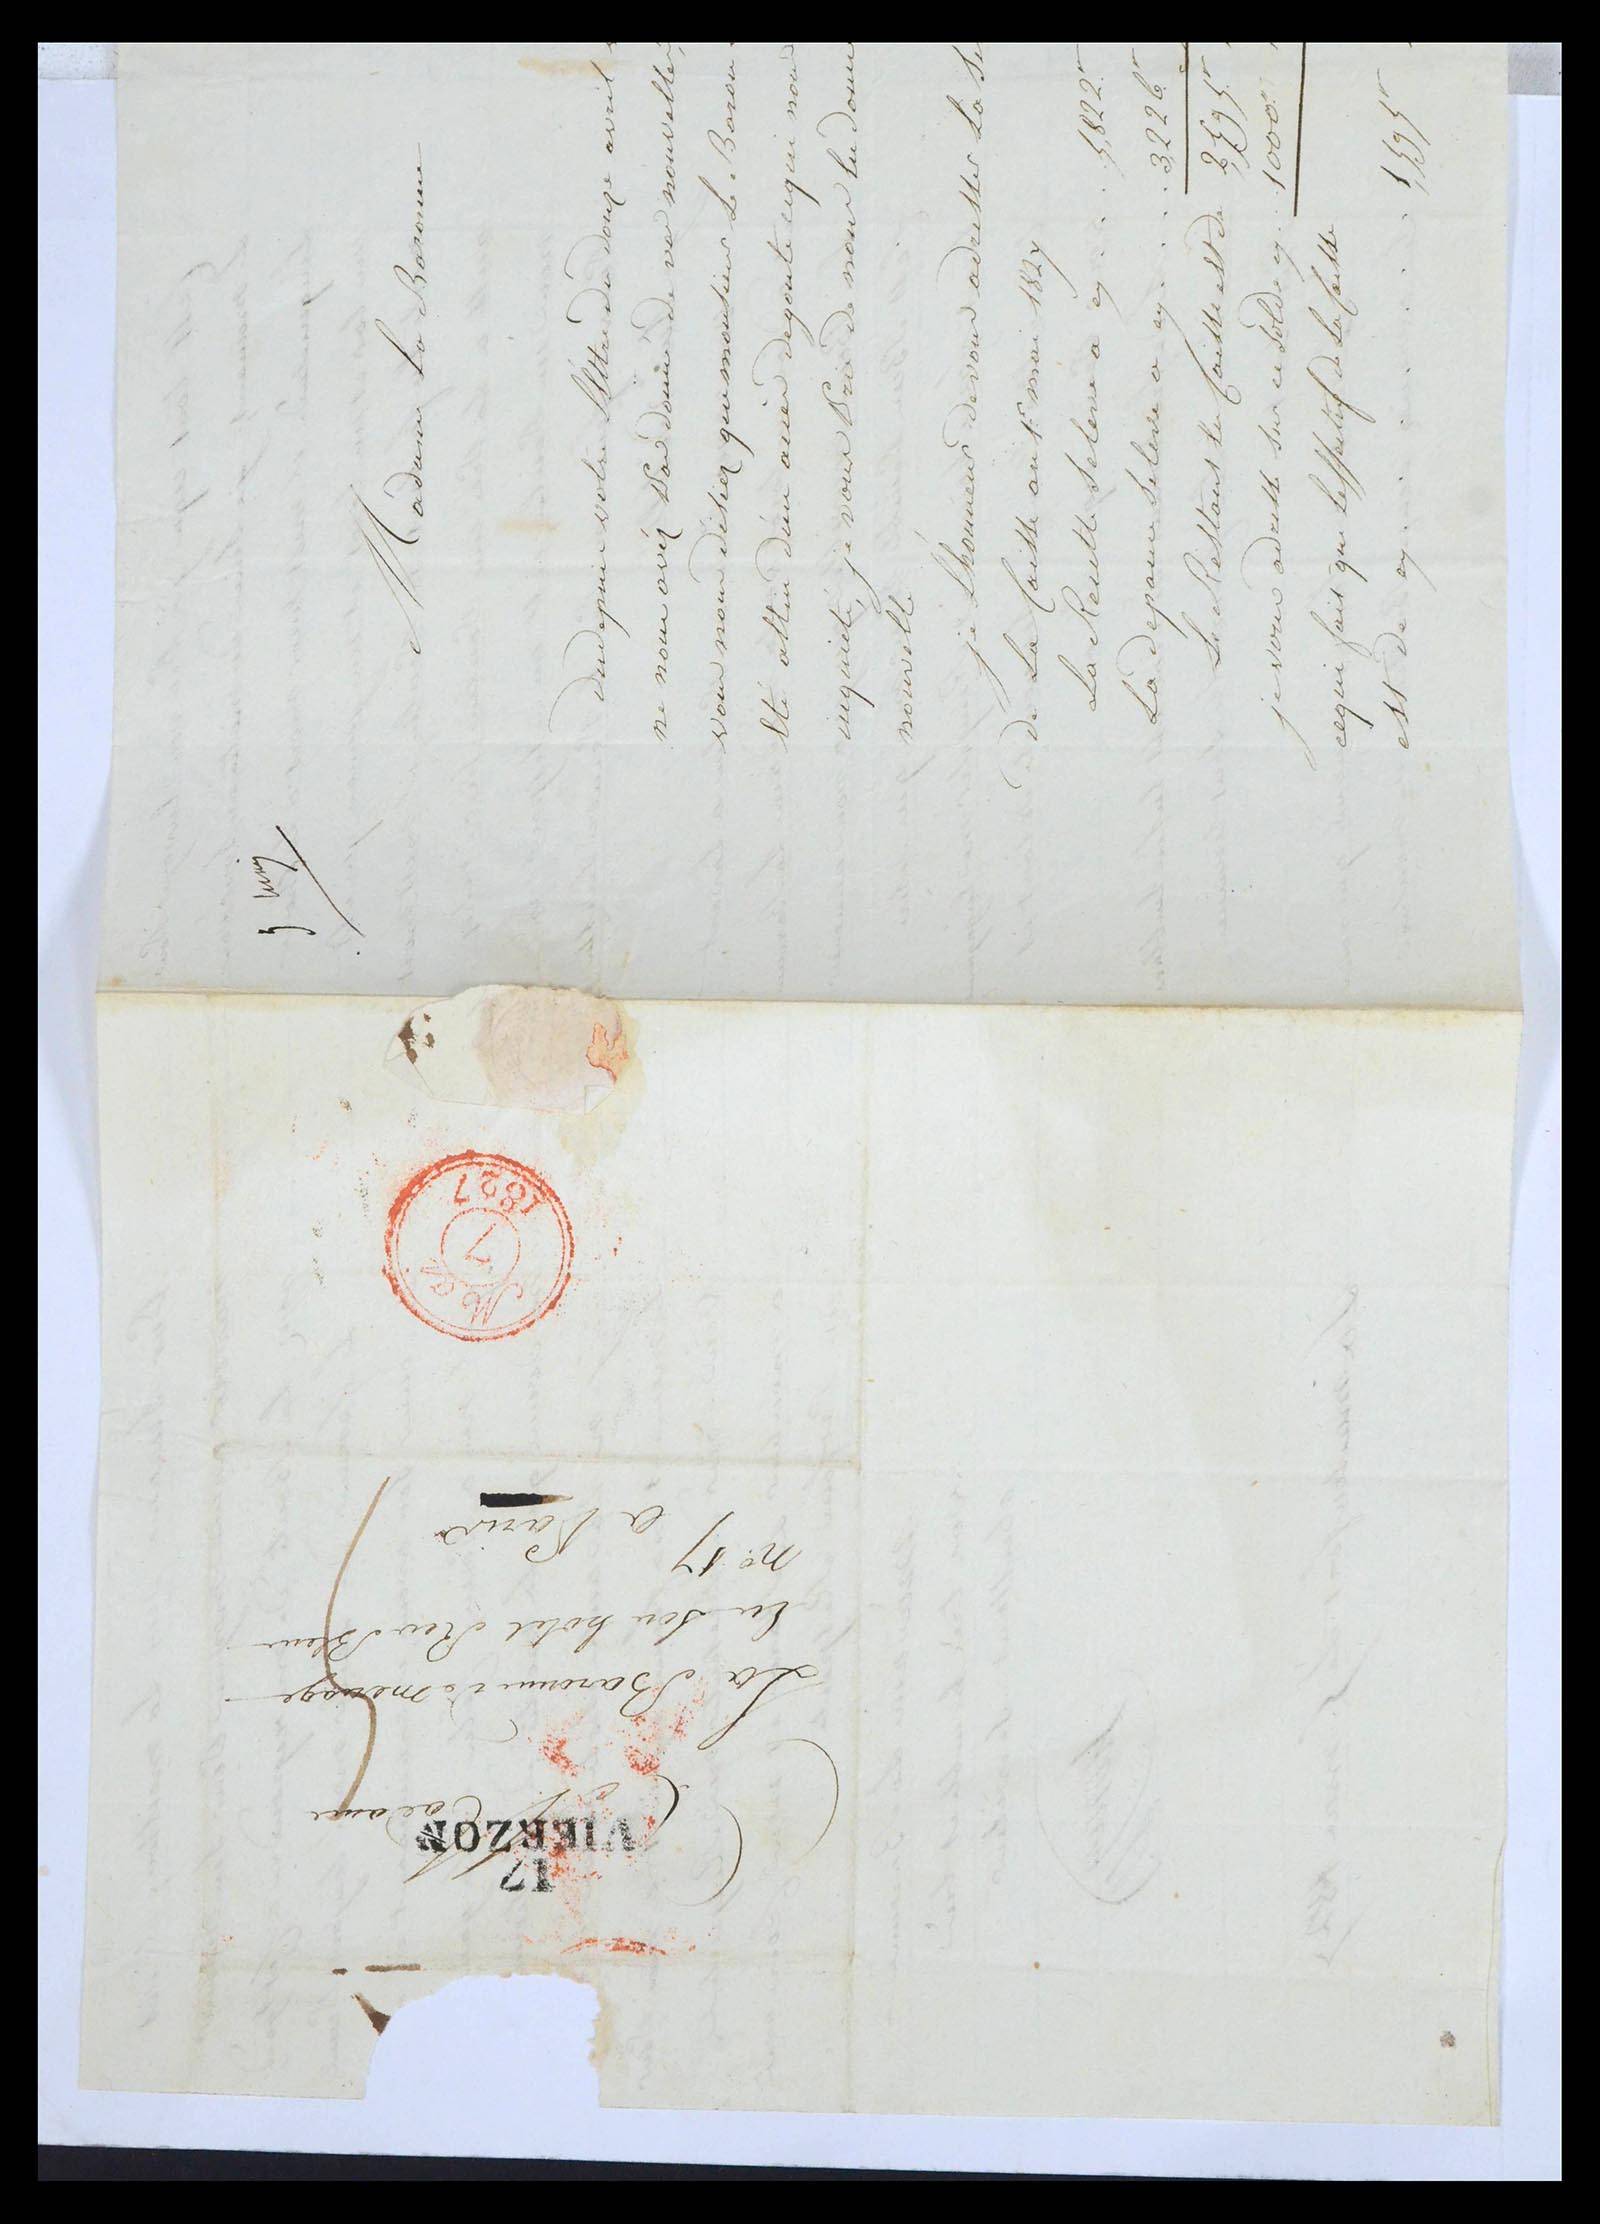 3 juin
Madame La Baronne
depuis votre lettre du douze avril
ne nous avéz Pas donné de vos nouvelles,
vous nous disiez que monsieur Le Baron
été attin dun acces de goute ce qui nous
inquieté, je vous Prie de nous En donner
nouvelle
je L'honneur de vous adresser La
de La Caisse au 1er mai 1827
La Recette S'eleve a cy . . . 5,822
La depense s'eleve a cy . . . 3,226
Le Restant En Caisse est de 2595
je vous adresse sur ce Solde cy . . 1000
ce qui fait que L'effectif de La Caisse
est de cy . . . . . . 1,595
MAI
7
1827
17
VIERZON
Madame
La Baronne de menage
En Son hotel Rue Bleue
no. 17
a Paris